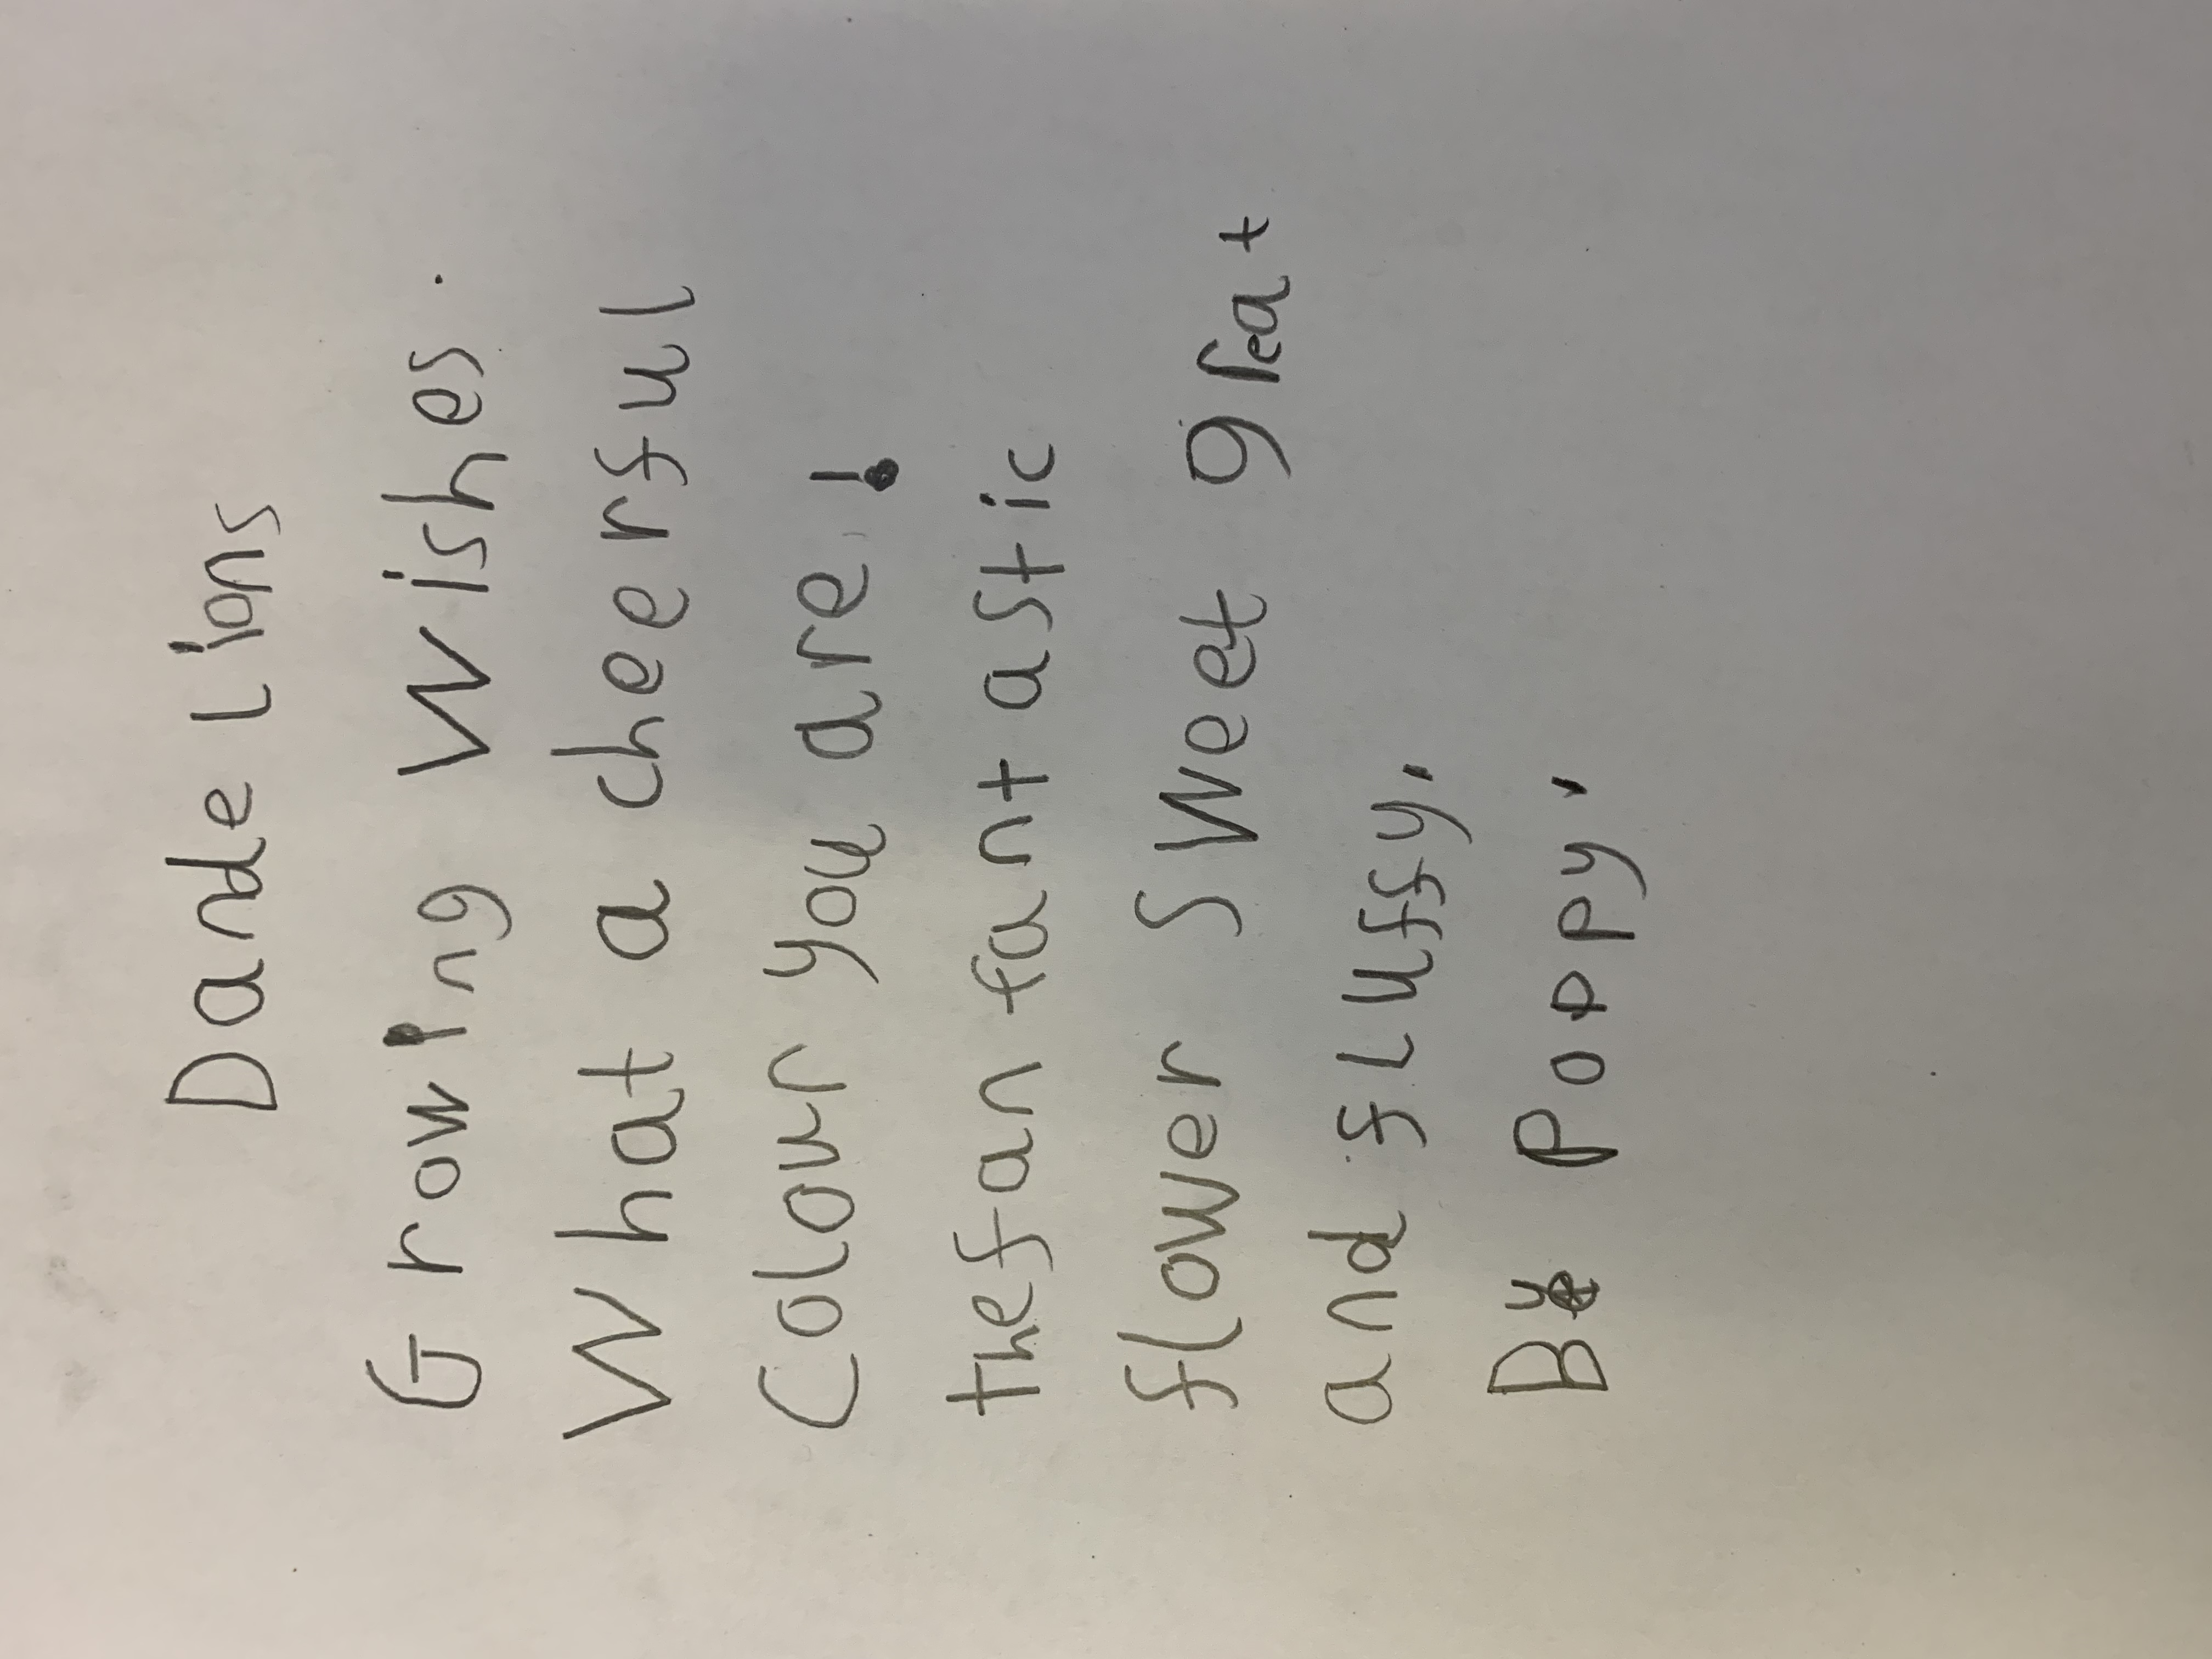 Dandelions
Growing Wishes.
What a cheerful
Colour you are!
the fan fantastic
flower sweet great
and fluffy.
By Poppy.